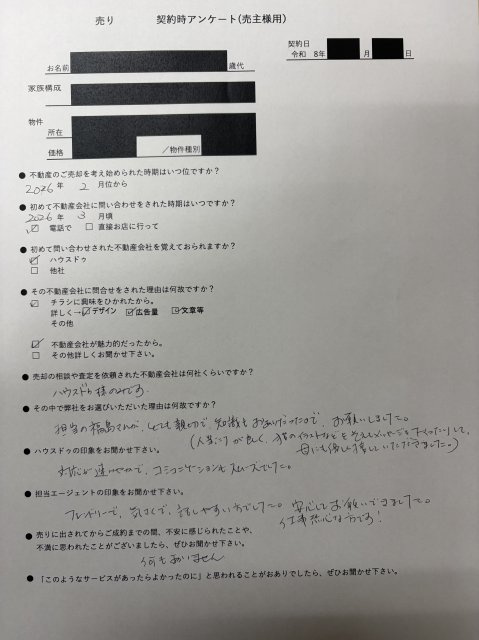 売り 契約時アンケート(売主様用)
契約日
令和 8年 月 日
お名前 歳代
家族構成
物件
所在
価格 /物件種別
● 不動産のご売却を考え始められた時期はいつ位ですか?
2026年 2月位から
● 初めて不動産会社に問い合わせをされた時期はいつですか?
2026年 3月頃
☑ 電話で □ 直接お店に行って
● 初めて問い合わせされた不動産会社を覚えておられますか?
☑ ハウスドゥ
□ 他社
● その不動産会社に問合せをされた理由は何故ですか?
☑ チラシに興味をひかれたから。
詳しく→☑デザイン ☑広告量 ☑文章等
その他
☑ 不動産会社が魅力的だったから。
□ その他詳しくお聞かせ下さい。
● 売却の相談や査定を依頼された不動産会社は何社くらいですか?
ハウスドゥ様のみです。
● その中で弊社をお選びいただいた理由は何故ですか?
担当の福島さんが、とても親切で、知識もおありだったので、お願いしました。
(人当りが良く、猫のイラストなどを
母にも優しく接していただきました。)
● ハウスドゥの印象をお聞かせ下さい。
対応が速やかで、コミュニケーションもスムーズでした。
● 担当エージェントの印象をお聞かせ下さい。
フレンドリーで、気さくで、話しやすい方でした。安心してお願いできました。
仕事熱心な方です!
● 売りに出されてからご成約までの間、不安に感じられたことや、
不満に思われたことがございましたら、ぜひお聞かせ下さい。
何もありません
● 「このようなサービスがあったらよかったのに」と思われることがおありでしたら、ぜひお聞かせ下さい。